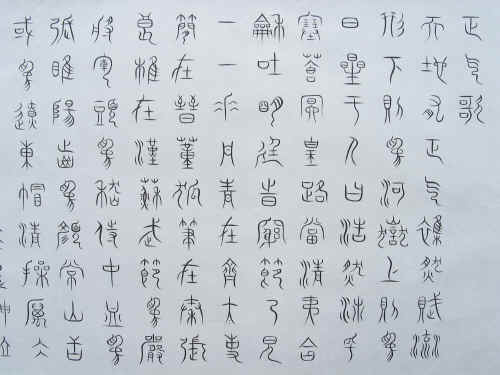 正氣歌
天地有正氣雜然賦流
形下則為河嶽上則為
日星于人曰浩然沛乎
塞蒼冥皇路當清夷含
和吐明庭時窮節乃見
一一垂丹青在齊太史
簡在晉董狐筆在秦張
良椎在漢蘇武節為嚴
將軍頭為嵇侍中血為
張睢陽齒為顏常山舌
或為遼東帽清操厲冰